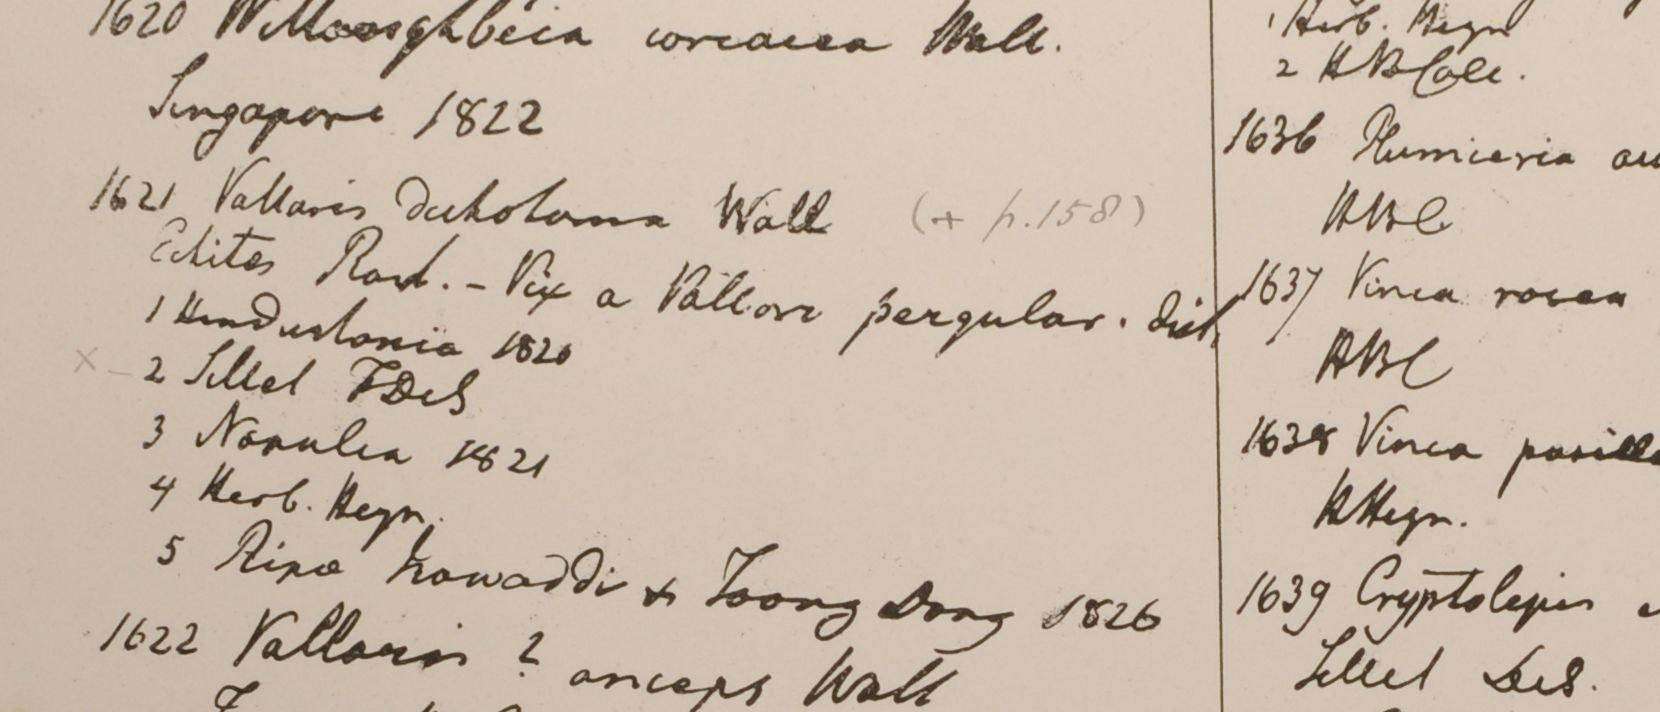 1620 Willooughbeia coriacea Wall.
Singapore 1822
1621 Vallaris dichotoma Wall (+ p. 158)
Echites Roxb. - Vix a Vallari pergular. dist.
1 Hindustania 1820
x - 2 Sillet FDeS
3 Napulia 1821
4 Herb. Heyn.
5 Ripa Irawaddi & Toong Dong 1826
1622 Vallaris ? anceps Wall
1 Herb. Heyn
2 HBCalc.
1636 Plumieria
HBC
1637 Vinca rosea
HBC
1638 Vinca pusilla
HHeyn.
1639 Cryptolepis
Sillet DeS.